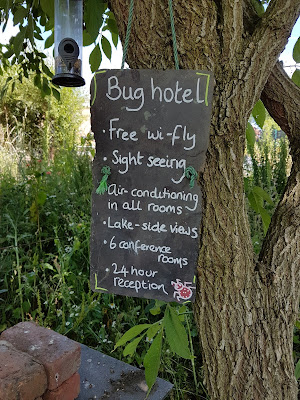 Bug hotel
• Free wi-fly
• Sight seeing
• Air-conditioning
in all rooms
• Lake-side views
• 6 conference
rooms
• 24 hour
reception